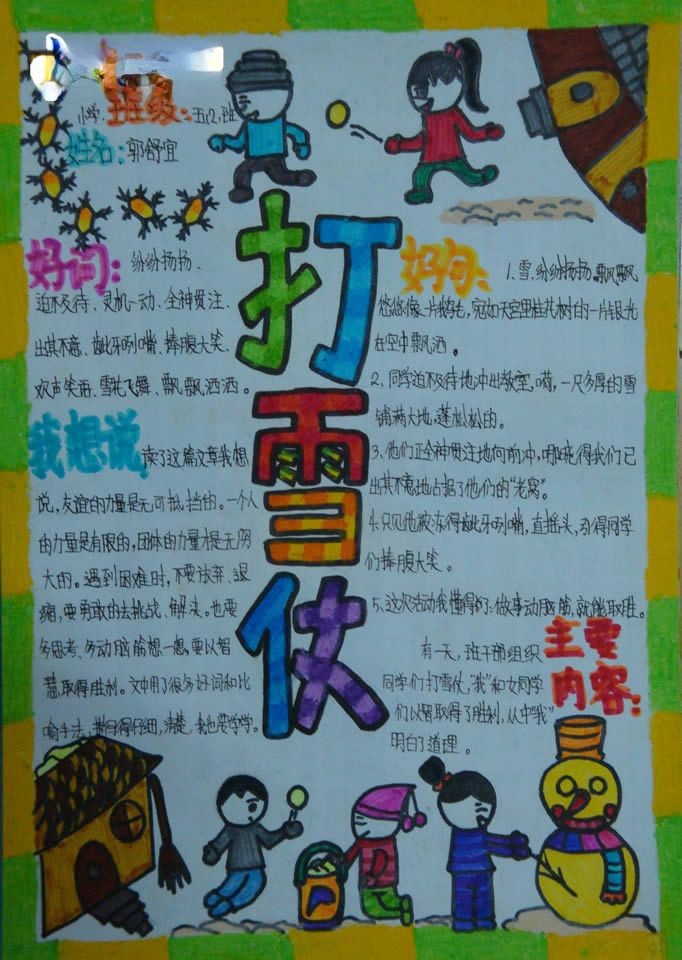 小学 班级：五(2)班
姓名：郭舒宜
打雪仗
好词：纷纷扬扬、
迫不及待、灵机一动、全神贯注、
出其不意、龇牙咧嘴、捧腹大笑、
欢声笑语、雪花飞舞、飘飘洒洒。
我想说 读了这篇文章我想
说，友谊的力量是无可抵挡的。一个人
的力量是有限的，团体的力量才是无穷
大的。遇到困难时，不要放弃、退
缩，要勇敢的去挑战、解决。也要
多思考、多动脑筋想一想，要以智
慧取得胜利。文中用了很多好词和比
喻手法，描写得仔细，清楚，我也要学学。
好句：1.雪，纷纷扬扬，飘飘
悠悠像一片鹅毛，宛如天宫里桂花树的一片银光
在空中飘洒。
2、同学迫不及待地冲出教室。嗬，一尺多厚的雪
铺满大地，蓬松松的。
3、他们正全神贯注地向前冲，哪晓得我们已
出其不意地占据了他们的“老窝”。
4.只见他被冻得龇牙咧嘴，直摇头，引得同学
们捧腹大笑。
5、这次活动我懂得了：做事动脑筋，就能取胜。
主要
内容：
有一天，班干部组织
同学们打雪仗，“我”和女同学
们以智取得了胜利，从中“我”
明白了道理。